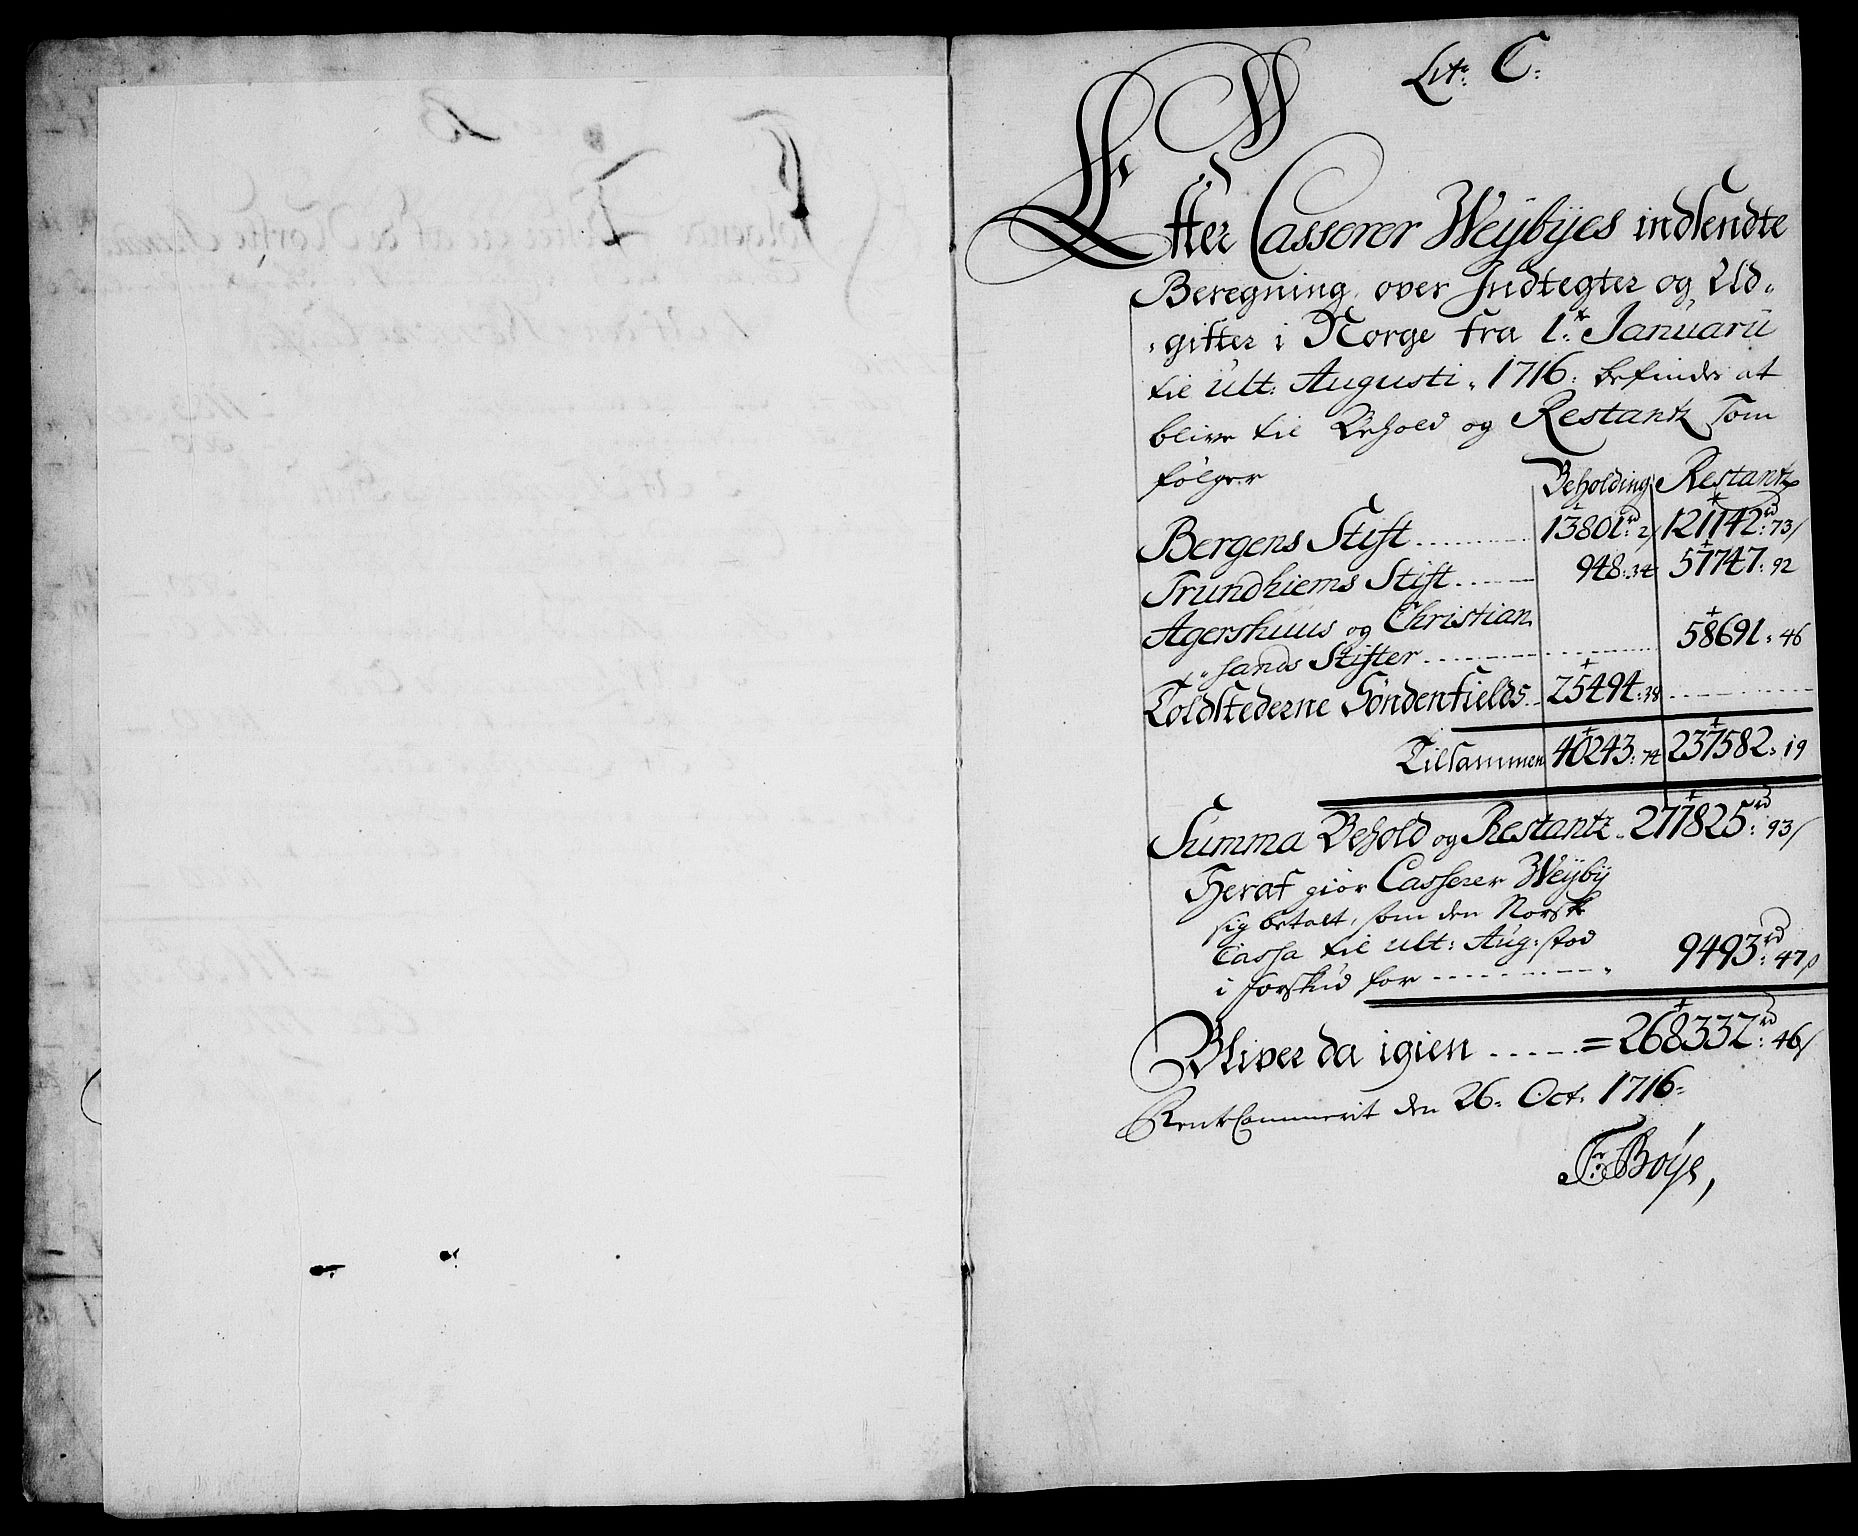 Litr. C.
Efter Casserer Weÿbÿes indsendte
Beregning over Indtegter og Ud„
„gifter i Norge fra 1: Januarii
til ult: Augusti 1716. befindes at
blive til Behold og Restantz som
følger
Beholding Restantz
Bergens Stift ......... 13801rd: 2/ 121142rd: 73/
Trundhiems Stift ...... 948: 34 57747: 92
Agershuus og Christian
„sands Stifter ......... 58691: 46
Toldstederne Søndenfields .. 25494: 38
Tilsammen 40243: 74 237582: 19
Summa Behold og Restantz .. 277825rd: 93/
Heraf giør Casserer Weÿbÿ
sig betalt, som den Norske
Cassa til ult: Aug: stod
i forskud for ......... 9493rd: 47/
Bliver da igien ...... = 268332rd: 46/
RentCammerit den 26. Oct. 1716.
F: Boÿe,